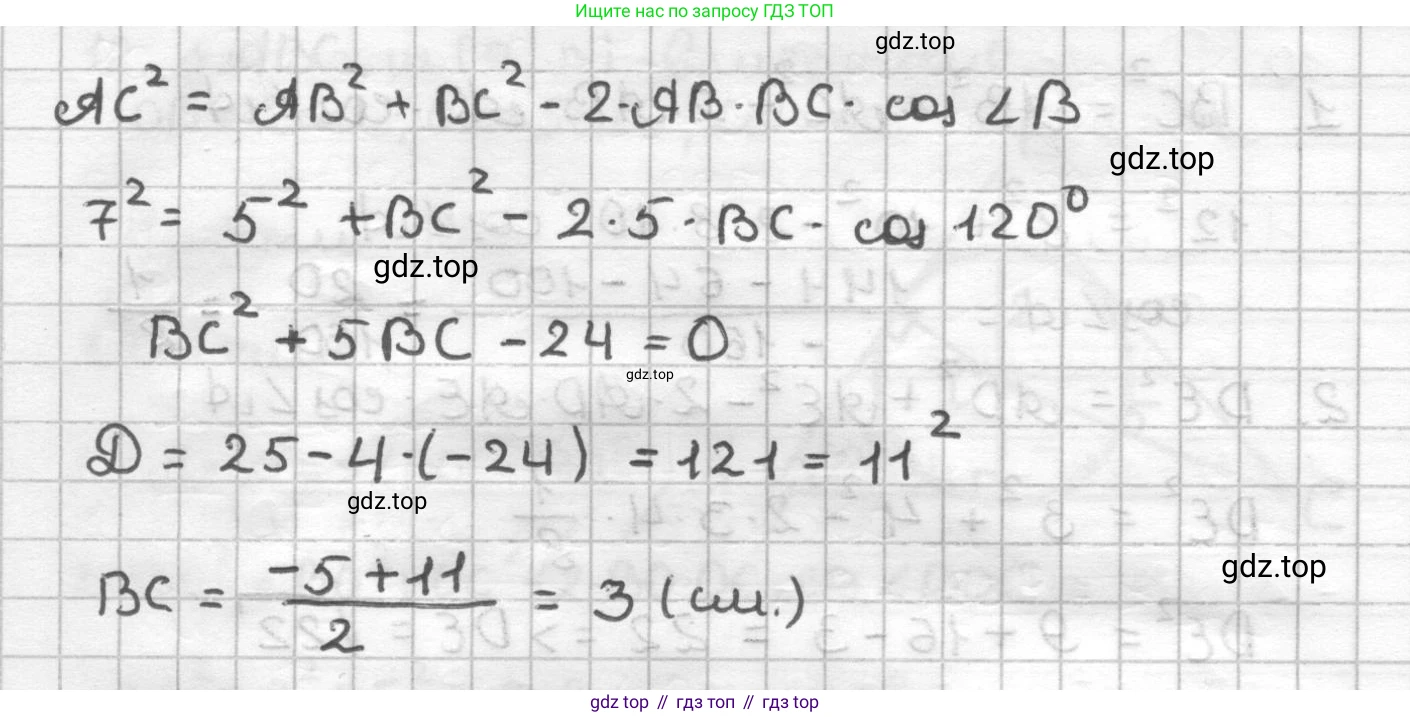 Ищите нас по запросу ГДЗ ТОП
gdz.top
AC² = AB² + BC² - 2·AB·BC· cos ∠B
gdz.top
7² = 5² + BC² - 2·5·BC· cos 120⁰
gdz.top
BC² + 5BC - 24 = 0
gdz.top
D = 25 - 4·(-24) = 121 = 11²
gdz.top
BC = (-5 + 11)/2 = 3 (см.)
gdz.top
gdz top // гдз топ // гдз top